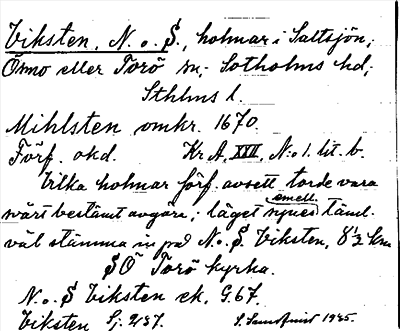 Viksten, N. o. S., holmar i Saltsjön,
Ösmo eller Torö sn, Sotholms hd,
Sthlms l.
Mihlsten omkr. 1670.
Förf. okd. Kr A, XVII, N:o 1. lit. b.
Vilka holmar förf. avsett torde vara
svårt bestämt avgöra; läget synes emell. täml.
väl stämma in på N. o. S. Viksten, 8½ km
SÖ Torö kyrka.
N. o. S Viksten ek. G.67.
Viksten Sj. 237. S. Sandquist 1925.